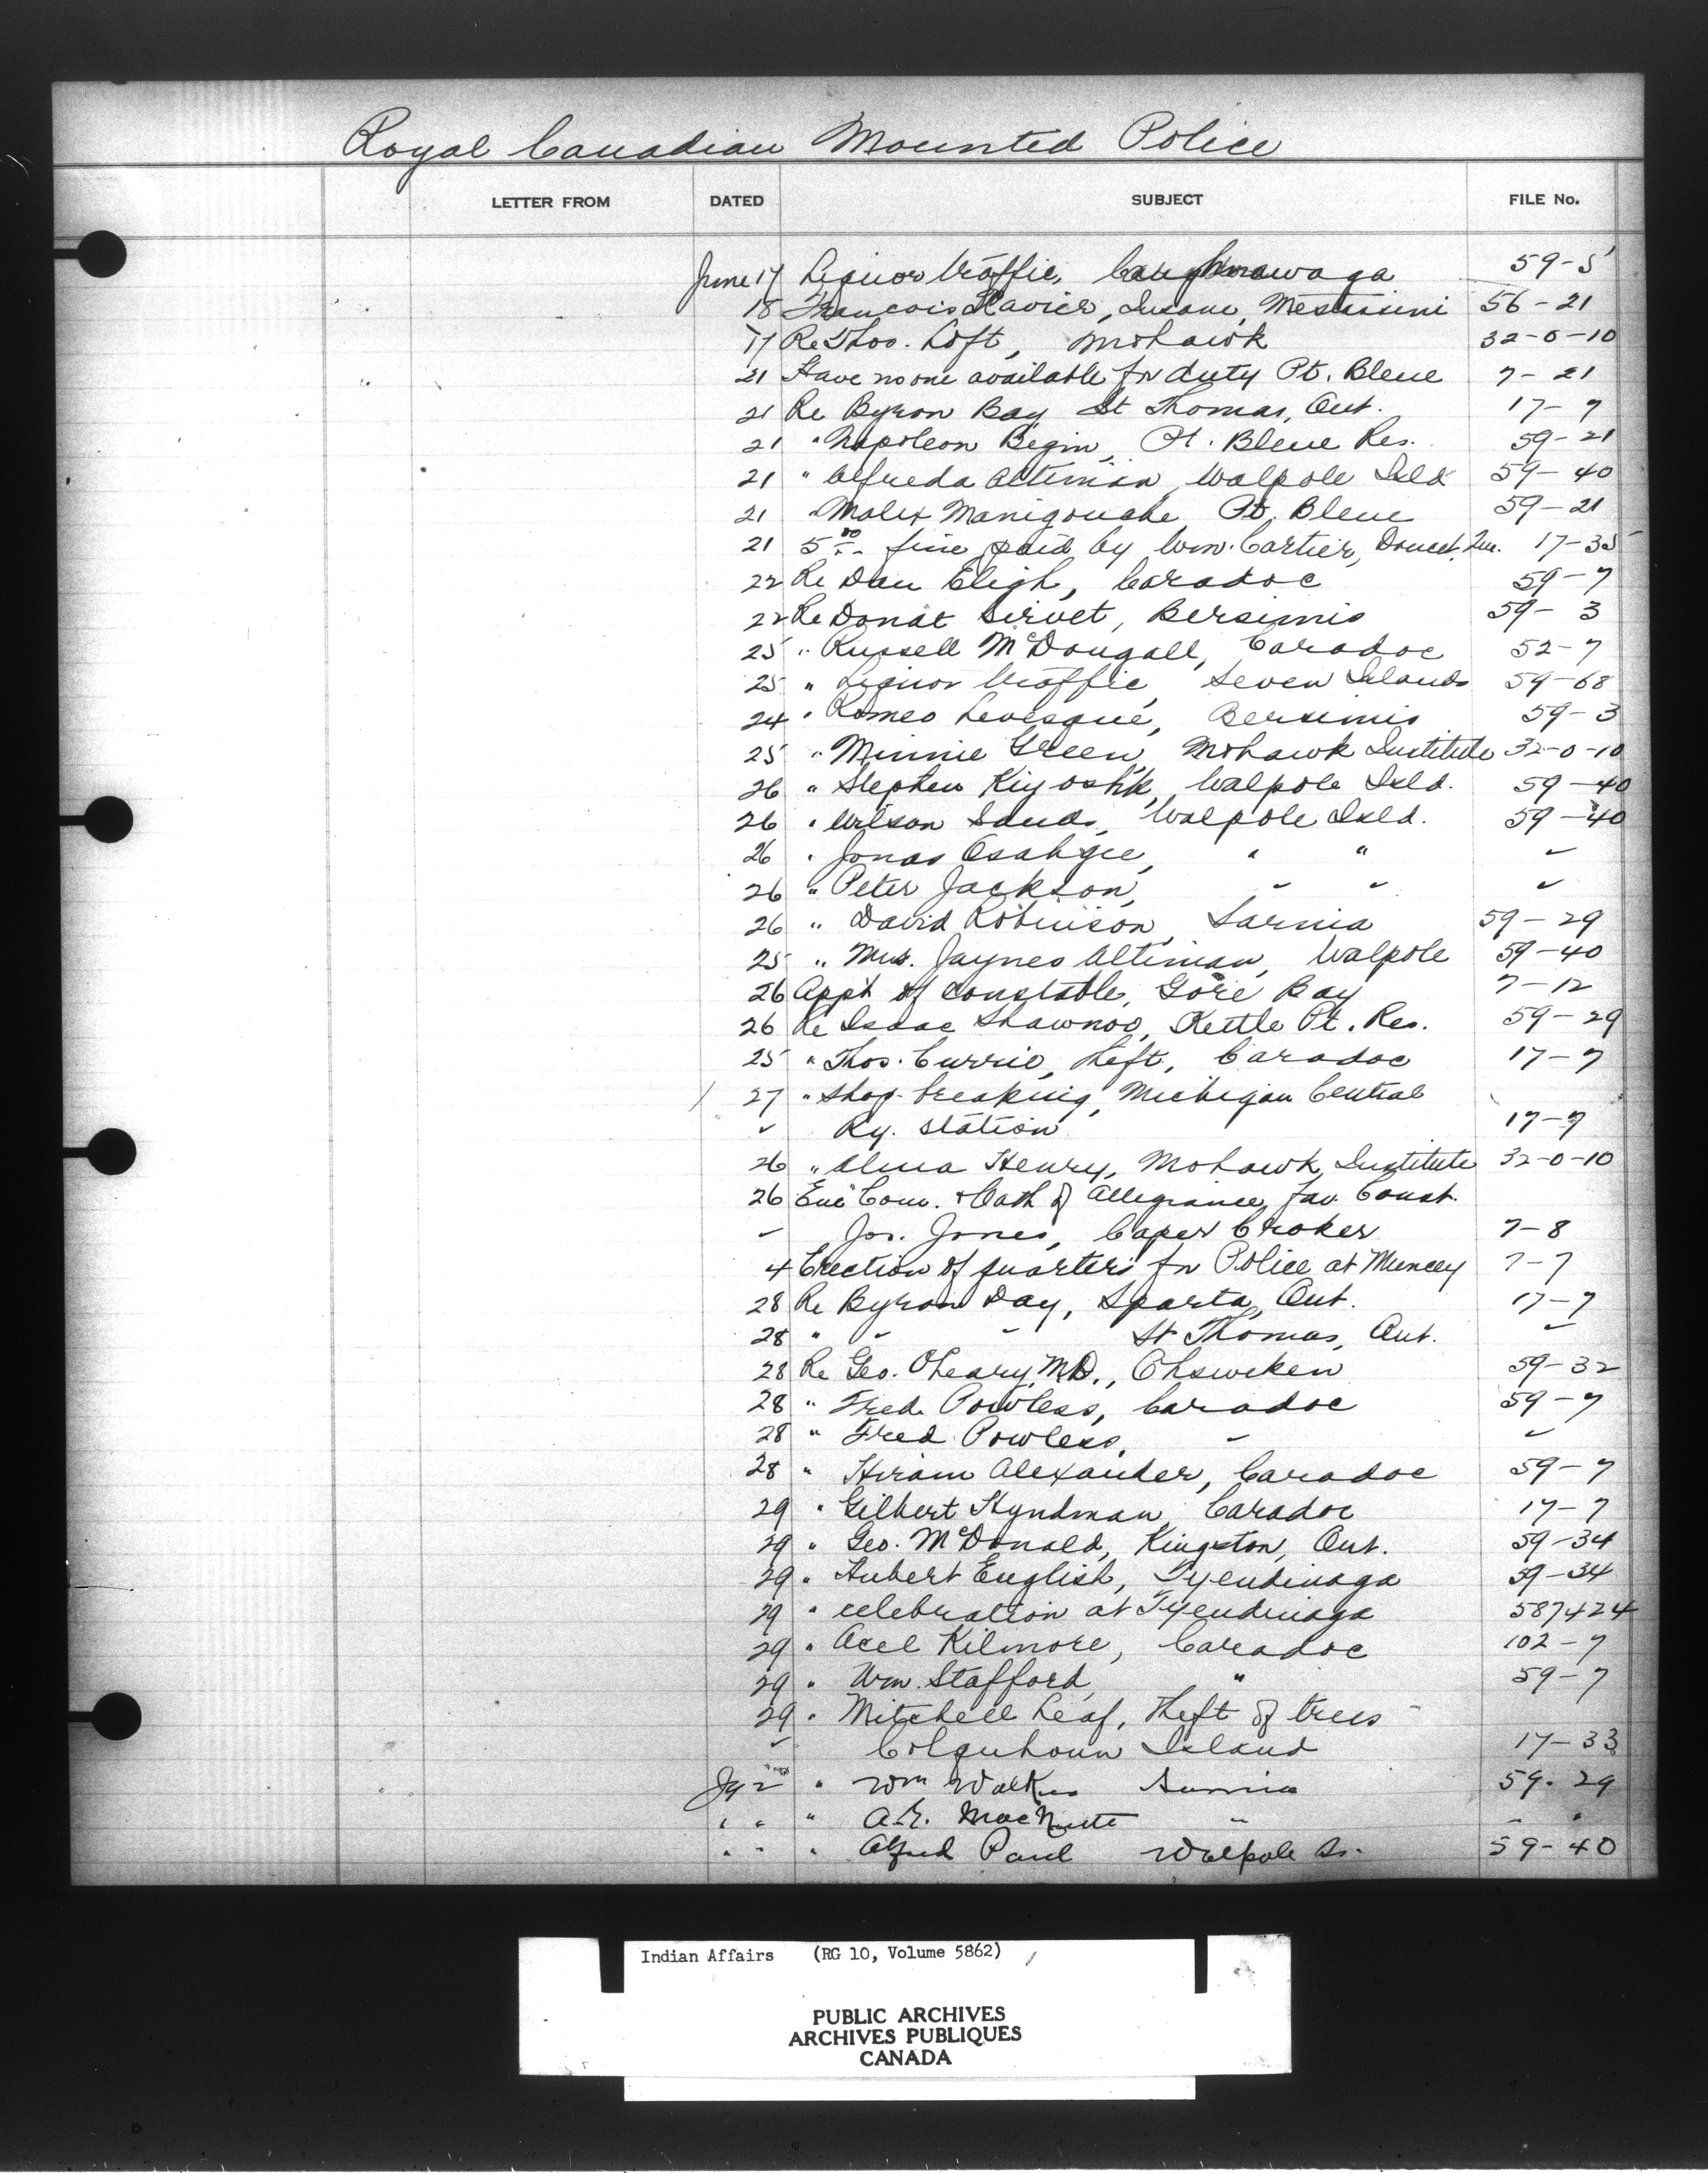 Royal Canadian Mounted Police
LETTER FROM DATED SUBJECT FILE No.
June 17 Liquor traffic, Caughnawaga 59-5
18 Francois Xavier, Insane, Mestassini 56-21
17 Re Thos. Loft, Mohawk 32-0-10
21 Have no one available for duty Pt. Bleue 7-21
21 Re Byron Bay, St Thomas, Ont. 17-7
21 " Napoleon Begin, Pt. Bleue Res. 59-21
21 " Alfreda Altiman, Walpole Isld 59-40
21 " Malex Manigouche, Pt. Bleue 59-21
21 5.00 fine paid by Wm. Cartier, Doucet, Que. 17-35
22 Re Dan Eligh, Caradoc 59-7
22 Re Donat Sirvet, Bersimis 59-3
25 " Russell McDougall, Caradoc 52-7
25 " Liquor traffic, Seven Islands 59-68
24 " Romeo Levesque, Bersimis 59-3
25 " Minnie Green, Mohawk Institute 32-0-10
26 " Stephen Kiyoshk, Walpole Isld. 59-40
26 " Wilson Sands, Walpole Isld. 59-40
26 " Jonas Osahgee, " " "
26 " Peter Jackson, " " "
26 " David Robinson, Sarnia 59-29
25 " Mrs. Jaynes Altiman, Walpole 59-40
26 App't of constable, Gore Bay 7-12
26 Re Isaac Shawnoo, Kettle Pt. Res. 59-29
25 " Thos. Currie, theft, Caradoc 17-7
27 " Shop-breaking, Michigan Central
" Ry. station 17-7
26 " Alma Henry, Mohawk Institute 32-0-10
26 Enc Com. & Oath of Allegiance fav. Const.
" Jos. Jones, Caper Croker 7-8
4 Erection of quarters for Police at Muncey 7-7
28 Re Byron Day, Sparta, Ont. 17-7
28 " " " St Thomas, Ont. "
28 Re Geo. O'Leary, M.D., Ohsweken 59-32
28 " Fred Powless, Caradoc 59-7
28 " Fred Powless, " "
28 " Hiram Alexander, Caradoc 59-7
29 " Gilbert Hyndman, Caradoc 17-7
29 " Geo. McDonald, Kingston, Ont. 59-34
29 " Hubert English, Tyendinaga 59-34
29 " celebration at Tyendinaga 587424
29 " Acel Kilmore, Caradoc 102-7
29 " Wm. Stafford, " 59-7
29 " Mitchell Leaf, theft of trees
" Colquhoun Island 17-33
Jy 2 " Wm Walker Sarnia 59-29
" " " MacNutt " " "
" " " Alfred Paul Walpole Is. 59-40
Indian Affairs (RG 10, Volume 5862)
PUBLIC ARCHIVES
ARCHIVES PUBLIQUES
CANADA